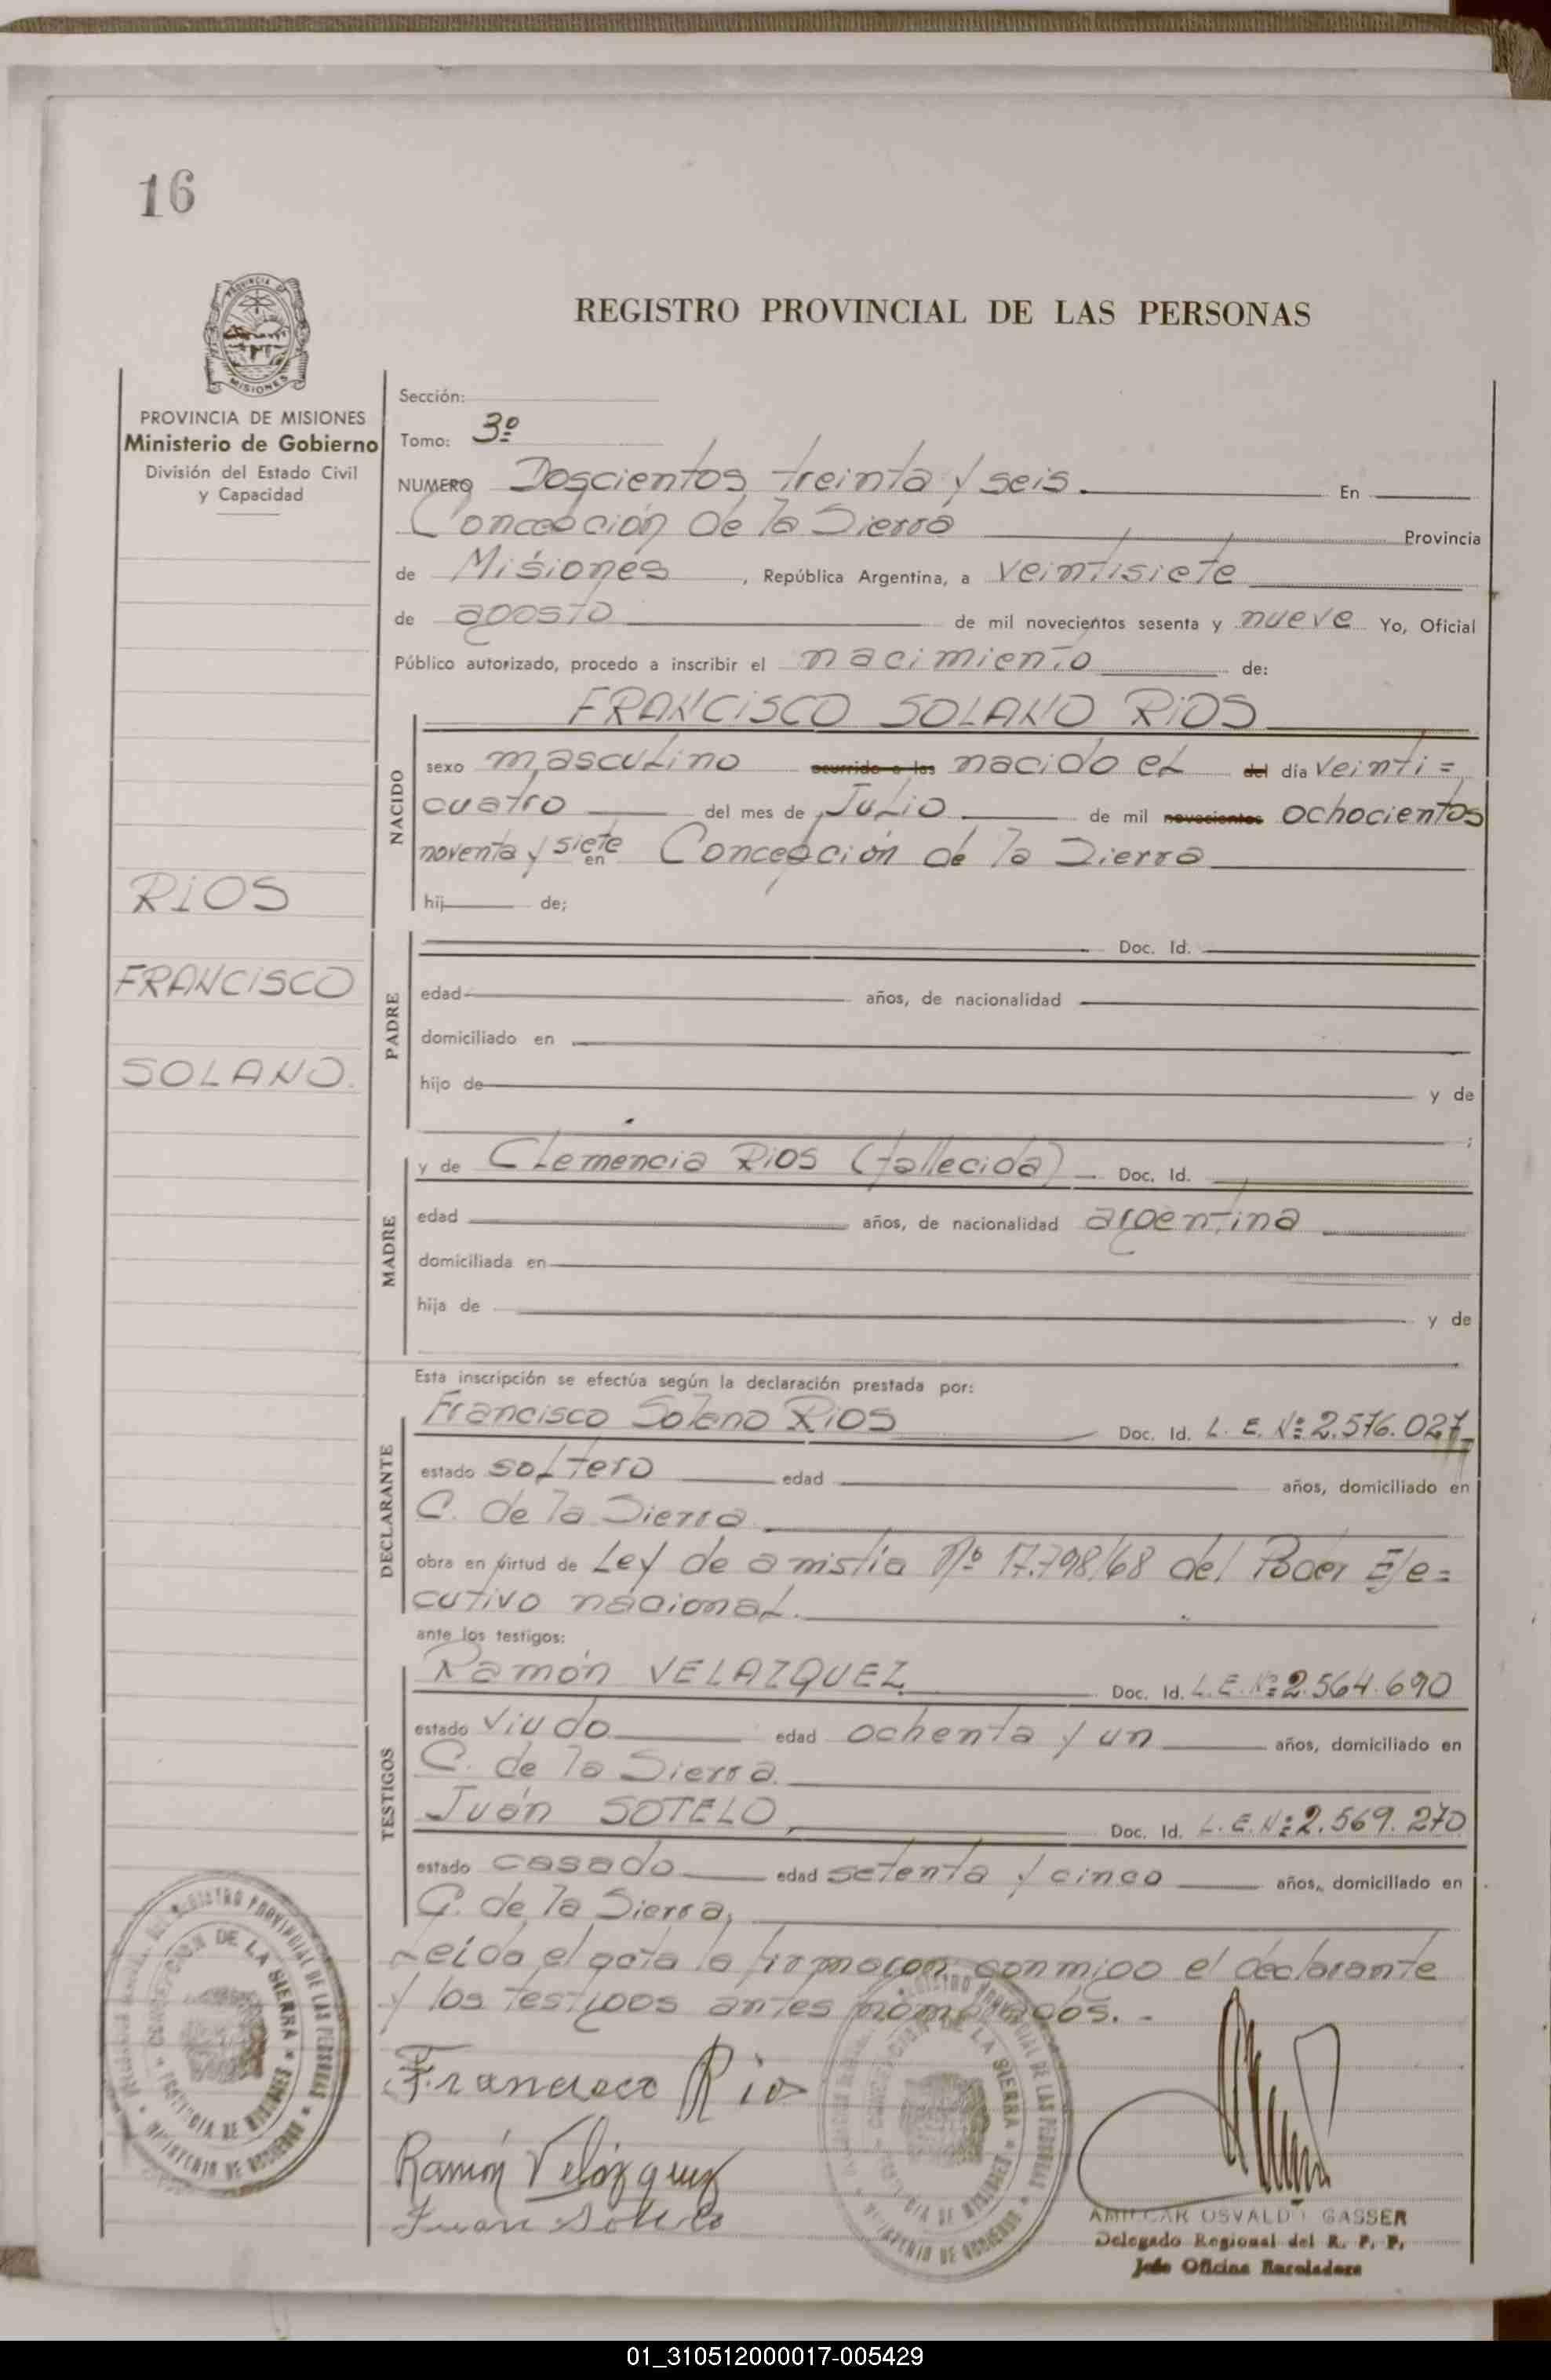 16
PROVINCIA DE MISIONES
MISIONES
Ministerio de Gobierno
División del Estado Civil
y Capacidad
REGISTRO PROVINCIAL DE LAS PERSONAS
Sección:
Tomo: 3º
NUMERO Doscientos treinta y seis En
Concepción de la Sierra Provincia
de Misiones, República Argentina, a veintisiete
de agosto de mil novecientos sesenta y nueve Yo, Oficial
Público autorizado, procedo a inscribir el nacimiento de:
FRANCISCO SOLANO RIOS
NACIDO
sexo masculino ocurrido a las nacido el del día veinti=
cuatro del mes de Julio de mil novecientos ochocientos
noventa y siete en Concepción de la Sierra
hij de;
RIOS
FRANCISCO
SOLANO.
PADRE
Doc. Id.
edad años, de nacionalidad
domiciliado en
hijo de y de
;
MADRE
y de Clemencia Rios (fallecida) Doc. Id.
edad años, de nacionalidad argentina
domiciliada en
hija de y de
Esta inscripción se efectúa según la declaración prestada por:
DECLARANTE
Francisco Solano Rios Doc. Id. L. E. Nº 2.576.027
estado soltero edad años, domiciliado en
C. de la Sierra
obra en virtud de Ley de amistia Nº 17.798/68 del Poder Eje=
cutivo nacional.
ante los testigos:
TESTIGOS
Ramón VELAZQUEZ Doc. Id. L.E. Nº 2.564.690
estado viudo edad ochenta y un años, domiciliado en
C. de la Sierra.
Juán SOTELO, Doc. Id. L.E. Nº 2.569.270
estado casado edad setenta y cinco años, domiciliado en
C. de la Sierra,
Leida el acta la firmaron conmigo el declarante
y los testigos antes nombrados. -
Francisco Rio
Ramón Velázquez
Juan Sotelo
REGISTRO PROVINCIAL DE LAS PERSONAS
MINISTERIO DE GOBIERNO
CONCEPCION DE LA SIERRA
PROVINCIA DE MISIONES
REGISTRO PROVINCIAL DE LAS PERSONAS
MINISTERIO DE GOBIERNO
CONCEPCION DE LA SIERRA
PROVINCIA DE MISIONES
AMILCAR OSVALDO GASSER
Delegado Regional del R. P. P.
Jefe Oficina Enroladora
01_310512000017-005429